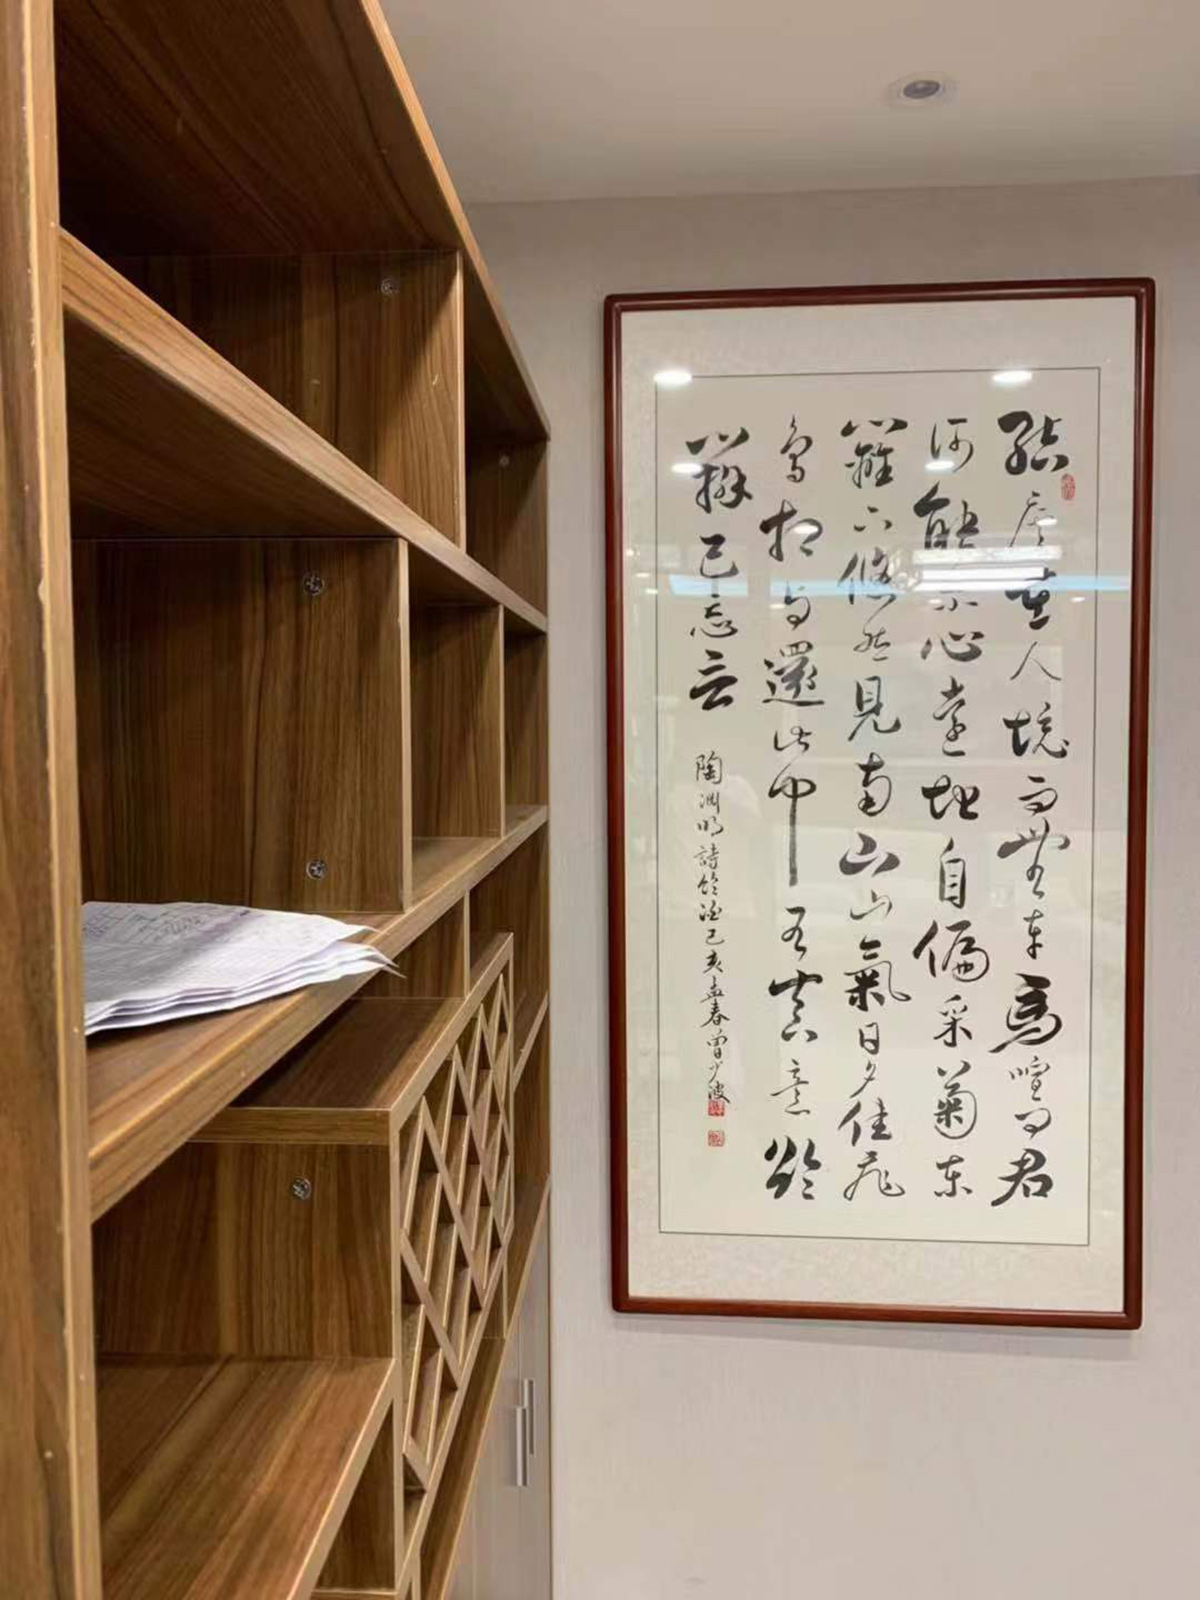 結廬在人境而無車馬喧問君
何能尔心遠地自偏采菊東
籬下悠然見南山山氣日夕佳飛
鳥相與還此中有真意欲
辨已忘言
陶淵明詩飲酒己亥孟春曾少波